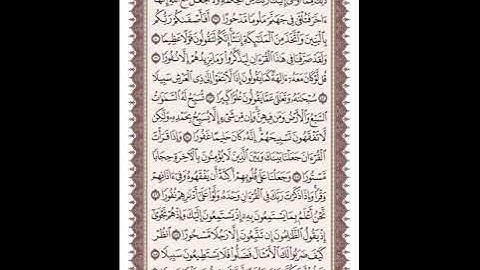 ذَٰلِكَ مِمَّآ أَوْحَىٰٓ إِلَيْكَ رَبُّكَ مِنَ ٱلْحِكْمَةِ وَلَا تَجْعَلْ مَعَ ٱللَّهِ إِلَٰهًا
ءَاخَرَ فَتُلْقَىٰ فِى جَهَنَّمَ مَلُومًا مَّدْحُورًا ۝ أَفَأَصْفَىٰكُمْ رَبُّكُم
بِٱلْبَنِينَ وَٱتَّخَذَ مِنَ ٱلْمَلَٰٓئِكَةِ إِنَٰثًا إِنَّكُمْ لَتَقُولُونَ قَوْلًا عَظِيمًا ۝
وَلَقَدْ صَرَّفْنَا فِى هَٰذَا ٱلْقُرْءَانِ لِيَذَّكَّرُوا۟ وَمَا يَزِيدُهُمْ إِلَّا نُفُورًا ۝
قُل لَّوْ كَانَ مَعَهُۥٓ ءَالِهَةٌ كَمَا يَقُولُونَ إِذًا لَّٱبْتَغَوْا۟ إِلَىٰ ذِى ٱلْعَرْشِ سَبِيلًا
۝ سُبْحَٰنَهُۥ وَتَعَٰلَىٰ عَمَّا يَقُولُونَ عُلُوًّا كَبِيرًا ۝ تُسَبِّحُ لَهُ ٱلسَّمَٰوَٰتُ
ٱلسَّبْعُ وَٱلْأَرْضُ وَمَن فِيهِنَّ وَإِن مِّن شَىْءٍ إِلَّا يُسَبِّحُ بِحَمْدِهِۦ وَلَٰكِن
لَّا تَفْقَهُونَ تَسْبِيحَهُمْ إِنَّهُۥ كَانَ حَلِيمًا غَفُورًا ۝ وَإِذَا قَرَأْتَ
ٱلْقُرْءَانَ جَعَلْنَا بَيْنَكَ وَبَيْنَ ٱلَّذِينَ لَا يُؤْمِنُونَ بِٱلْءَاخِرَةِ حِجَابًا
مَّسْتُورًا ۝ وَجَعَلْنَا عَلَىٰ قُلُوبِهِمْ أَكِنَّةً أَن يَفْقَهُوهُ وَفِىٓ ءَاذَانِهِمْ
وَقْرًا وَإِذَا ذَكَرْتَ رَبَّكَ فِى ٱلْقُرْءَانِ وَحْدَهُۥ وَلَّوْا۟ عَلَىٰٓ أَدْبَٰرِهِمْ نُفُورًا ۝
نَّحْنُ أَعْلَمُ بِمَا يَسْتَمِعُونَ بِهِۦٓ إِذْ يَسْتَمِعُونَ إِلَيْكَ وَإِذْ هُمْ نَجْوَىٰٓ
إِذْ يَقُولُ ٱلظَّٰلِمُونَ إِن تَتَّبِعُونَ إِلَّا رَجُلًا مَّسْحُورًا ۝ ٱنظُرْ
كَيْفَ ضَرَبُوا۟ لَكَ ٱلْأَمْثَالَ فَضَلُّوا۟ فَلَا يَسْتَطِيعُونَ سَبِيلًا